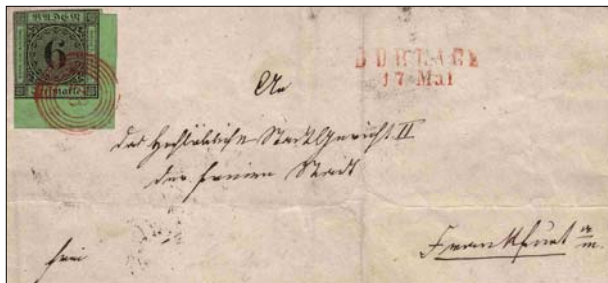 BADEN
6
Freimarke
DURLACH
17 Mai
An
das Hochlöbliche Stadt Gericht II
der freien Stadt
Frankfurt a/m.
frei